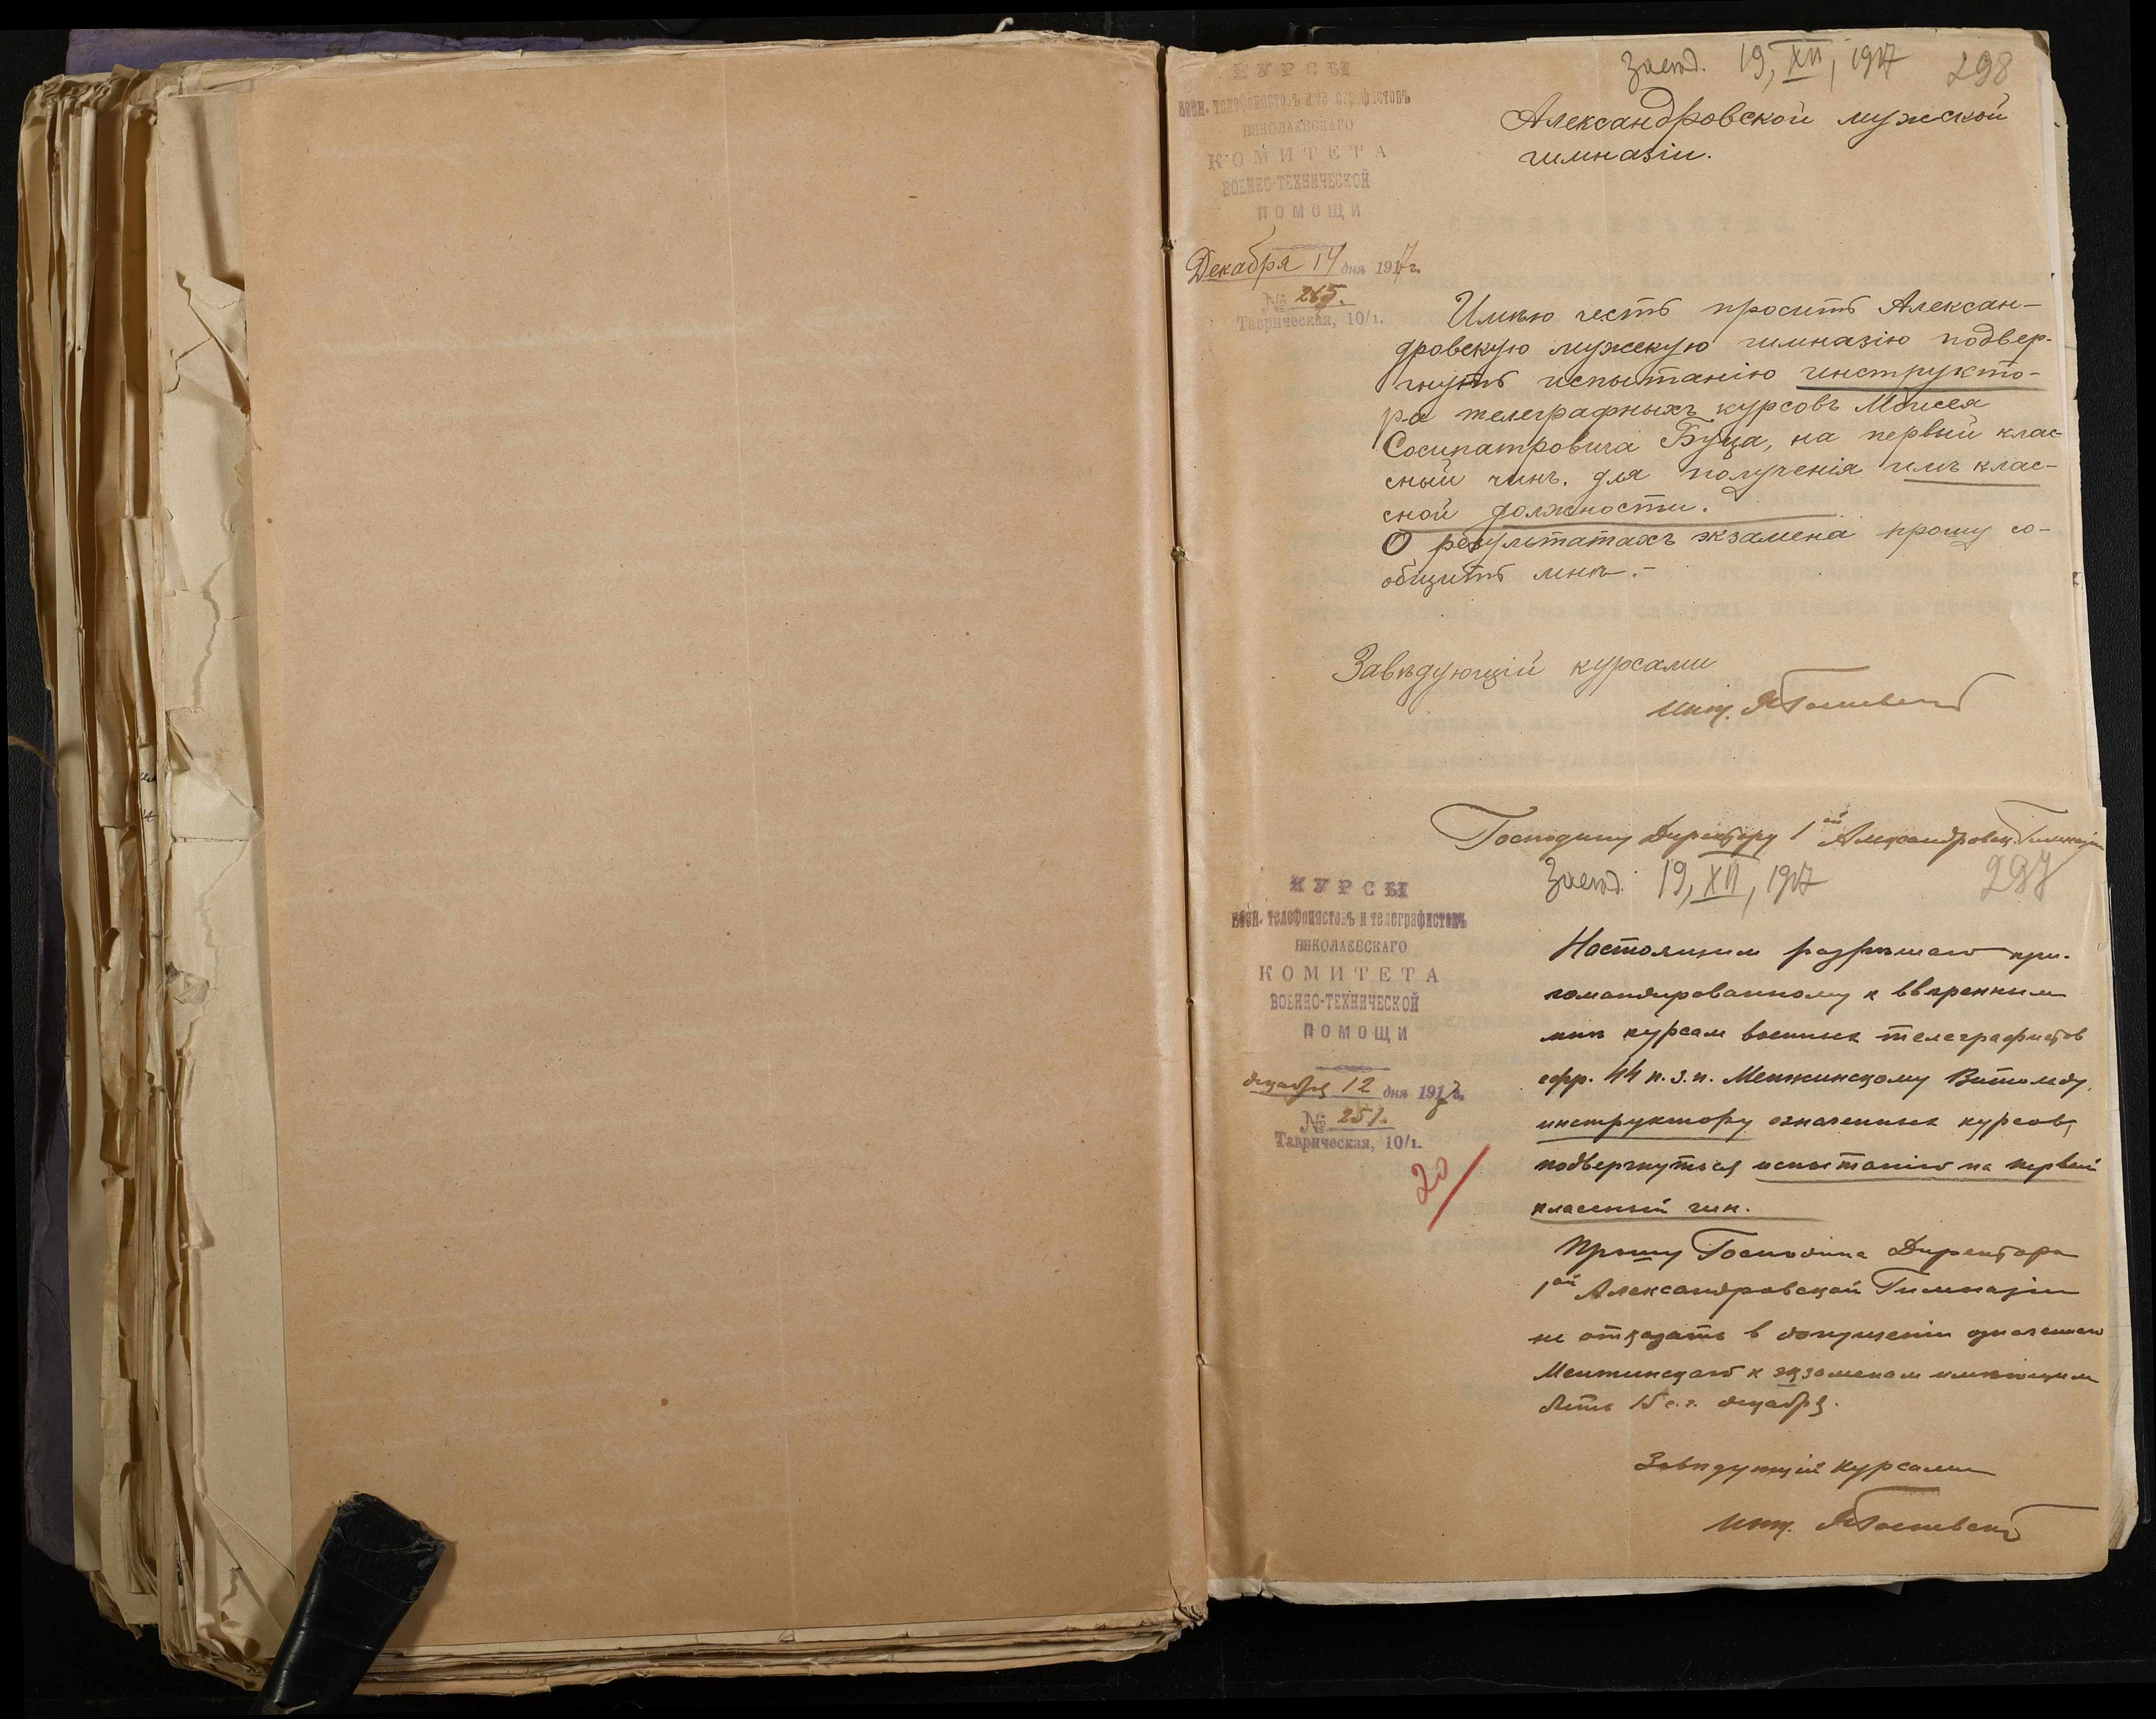 Засѣд. 19, XII, 1917 298
КУРСЫ
воен. телефонистовъ и телеграфистовъ
НИКОЛАЕВСКАГО
КОМИТЕТА
ВОЕННО-ТЕХНИЧЕСКОЙ
ПОМОЩИ
Декабря 14 дня 1917 г.
№ 265.
Таврическая, 10/1.
Александровской мужской
гимназіи.
Имѣю честь просить Алексан-
дровскую мужскую гимназію подвер-
гнуть испытанію инструкто-
ра телеграфныхъ курсовъ Моисея
Сосипатровича Буца, на первый клас-
сный чинъ. для полученія имъ клас-
сной должности.
О результатахъ экзамена прошу со-
общить мнѣ.-
Завѣдующій курсами
Инж.
Господину Директору 1ой Александровск. Гимназіи
Засѣд. 19, XII, 1917 297
КУРСЫ
воен. телефонистовъ и телеграфистовъ
НИКОЛАЕВСКАГО
КОМИТЕТА
ВОЕННО-ТЕХНИЧЕСКОЙ
ПОМОЩИ
декабря 12 дня 1917 г.
№ 251.
Таврическая, 10/1.
20/
Настоящим разрѣшаю при-
командированному к ввѣренным
мнѣ курсам военных телеграфистов
ефр. 44 п. з. п. Менжинскому Витольду,
инструктору означенных курсов,
подвергнуться испытанію на первый
классный чин.
Прошу Господина Директора
1ой Александровской Гимназіи
не отказать в допущеніи означеннаго
Менжинскаго к экзаменам имѣющим
быть 15 с. г. декабря.
Завѣдующій Курсами
Инж.